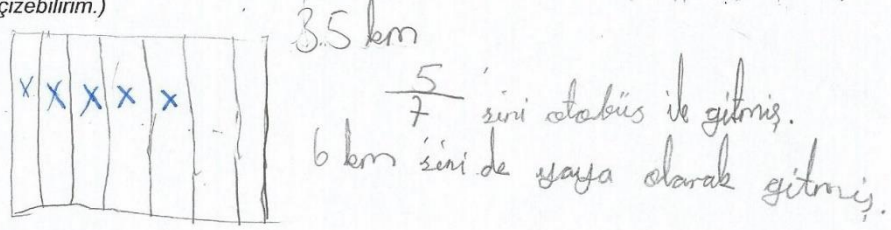 çizebilirim.)
35 km
5/7 'sini otobüs ile gitmiş.
6 km 'sini de yaya olarak gitmiş.
x x x x x